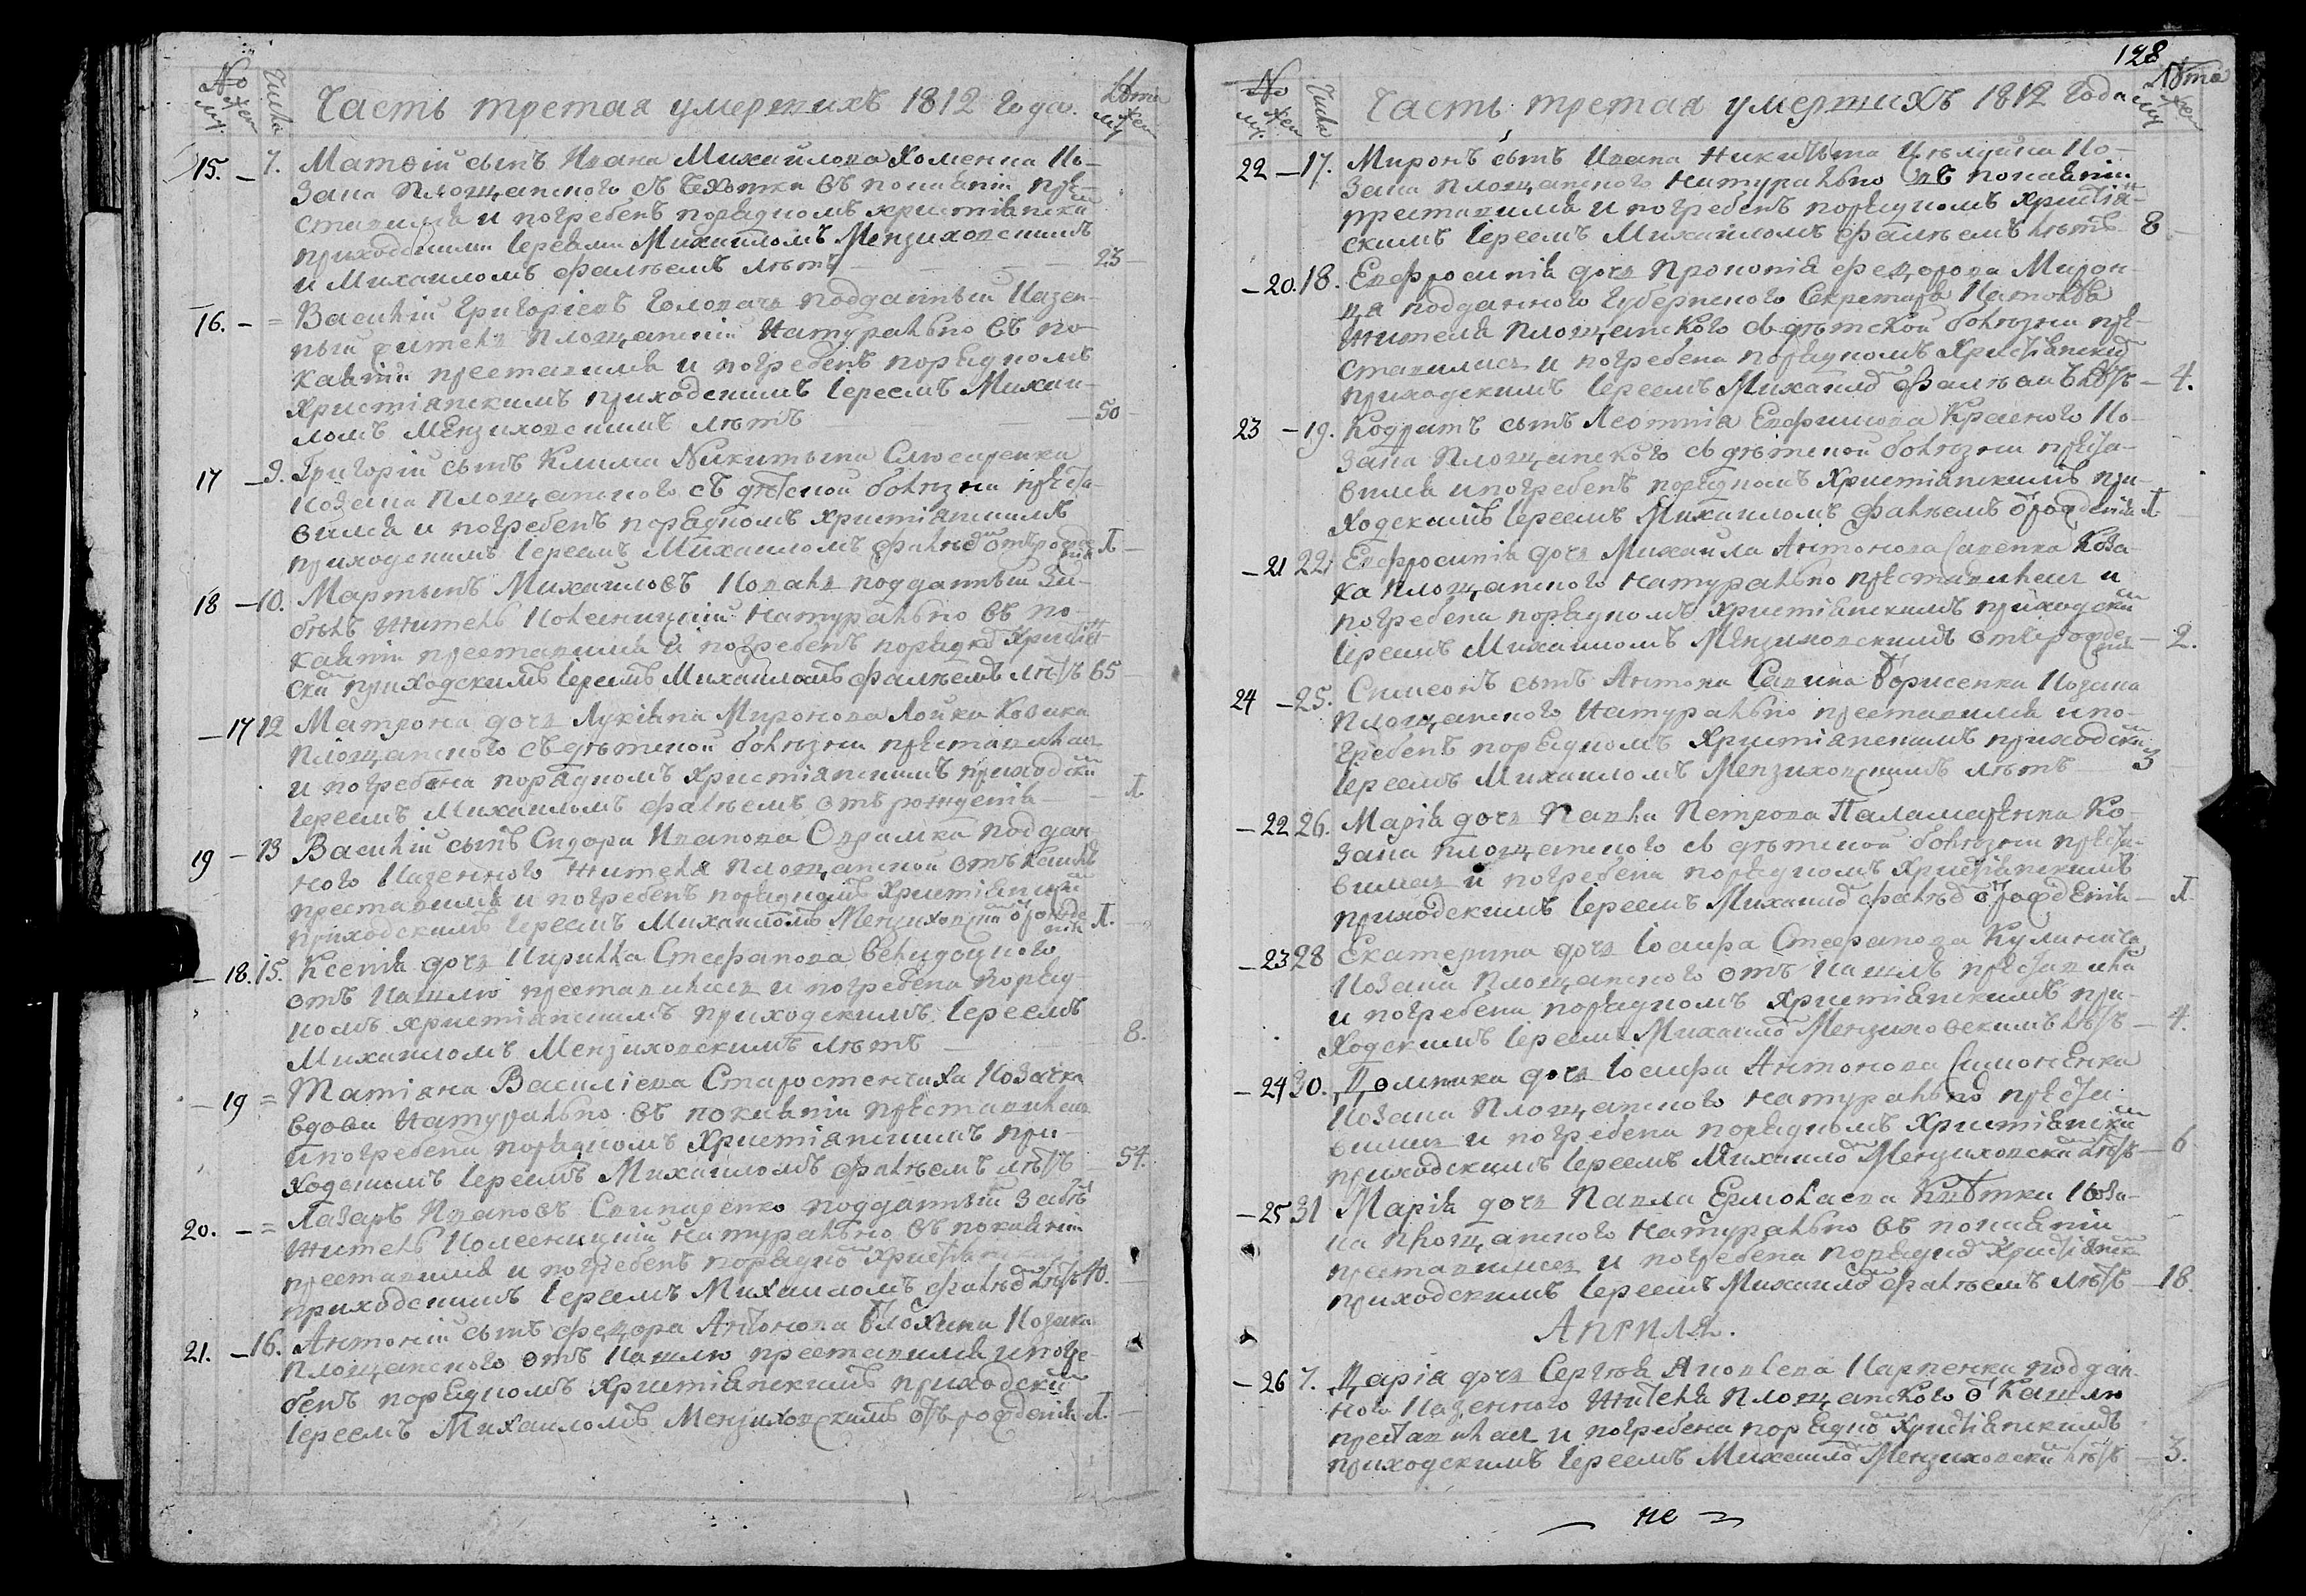 № муж жен
Числа
Часть третая умершихъ 1812 года.
Лѣта муж жен
15. – 7. Матѳій сынъ Ивана Михайлова Хоменка Ко-
зака Площанского съ сухотки въ покаяніи пре-
ставился и погребенъ порядкомъ христіански
приходскими Іереями Михаиломъ Мензиховскимъ
и Михаиломъ Фалѣемъ лѣтъ – 23
16. – = Василій Григоріевъ Головачь подданный Казен-
ный житель Площанскій Натурально въ по-
каяніи преставился и погребенъ порядкомъ
Христіанскимъ приходскимъ Іереемъ Михаи-
ломъ Мензиховскимъ лѣтъ – 50
17 – 9. Григорій сынъ Клима Никитина Слюсаренка
Козака Площанского съ дѣтской болѣзни преста-
вился и погребенъ порядкомъ христіанскимъ
приходскимъ Іереемъ Михаиломъ Фалѣемъ отъ рожде
нія
18 – 10. Мартынъ Михайловъ Коваль подданный За-
бѣлѣ житель натурально въ по-
каяніи преставился и погребенъ порядко Христіан
ски приходскимъ Іереемъ Михаиломъ Фалѣемъ лѣтъ 65
– 17 12 Матрона дочь Лукіана Миронова Лойка Козака
Площанского съ дѣтской болѣзни преставилась
и погребена порядкомъ Христіанскимъ приходски
Іереемъ Михаиломъ Фалѣемъ отъ рожденія
19 – 13 Василій сынъ Сидора Иванова подан-
ного Казенного жителя Площанской отъ кашлю
преставился и погребенъ порядкомъ Христіански
приходскимъ Іереемъ Михаиломъ Мензиховски о рожде
нія
– 18. 15. Ксенія дочь Кирилла Стефанова
отъ Кашлю преставилась и погребена поряд-
комъ христіанскимъ приходскимъ Іереемъ
Михаиломъ Мензиховскимъ лѣтъ – 8.
– 19 = Татіана Василіева Старостенчиха Козачка
вдова Натурально въ покаяніи преставилась
и погребена порядкомъ Христіанскимъ при-
ходскимъ Іереемъ Михаиломъ Фалѣемъ лѣтъ – 54.
20. – = Лазарь Ивановъ подданный Забѣлѣ
житель натурально въ покаяніи
преставился и погребенъ порядко христіа
приходскимъ Іереемъ Михаиломъ Фалѣе лѣтъ 40.
21. – 16. Антоній сынъ Федора Антонова Блохина Козака
Площанского отъ Кашлю преставился и погре-
бенъ порядкомъ Христіанскимъ приходски
Іереемъ Михаиломъ Мензиховскимъ отъ рожденія
128
№ муж жен
Числа
Часть третая умершихъ 1812 Года
Лѣта муж жен
22 – 17. Миронъ сынъ Ивана Никитина Ко-
зака Площанского натурально въ покаяніи
преставился и погребенъ порядкомъ Христіа-
скимъ Іереемъ Михаиломъ Фалѣемъ лѣтъ 8
– 20. 18. Евфросинія дочь Прокопія Федорова Мирон-
ца подданного Губернского Секретаря
жителя Площанского съ дѣтской болѣзни пре-
ставилась и погребена порядкомъ Христіански
приходскимъ Іереемъ Михаило Фалѣемъ лѣтъ – 4.
23 – 19. Кодратъ сынъ Леонтія Евфимова Красного Ко-
зака Площанского съ дѣтской болѣзни преста-
вился и погребенъ порядкомъ Христіанскимъ при-
ходскимъ Іереемъ Михаиломъ Фалѣемъ о рожденія
– 21 22. Евфросинія дочь Михаила Антонова Савенка Коза-
ка Площанского натурально преставилась и
погребена порядкомъ христіанскимъ приходски
Іереемъ Михаиломъ Мензиховскимъ отъ рожде
нія – 2.
24 – 25. Симеонъ сынъ Антона Савина Борисенка Козака
Площанского Натурально преставился и по-
гребенъ порядкомъ Христіанскимъ приходски
Іереемъ Михаиломъ Мензиховскимъ лѣтъ – 3
– 22 26. Марія дочь Павла Петрова Паламаренка Ко-
зака Площанского съ дѣтской болѣзни преста-
вилась и погребена порядкомъ Христіанскимъ
приходскимъ Іереемъ Михаило Фалѣе о рожденія
– 23 28 Екатерина дочь Іосифа Стефанова Кулинича
Козака Площанского отъ Кашлѣ преставила
и погребена порядкомъ Христіанскимъ при-
ходскимъ Іереемъ Михаило Мензиховскимъ лѣтъ – 4.
– 24 30. Домника дочь Іосифа Антонова Симоненка
Козака Площанского натурально преста-
вилась и погребена порядкомъ Христіански
приходскимъ Іереемъ Михаило Мензиховски лѣтъ – 6
– 25 31 Марія дочь Павла Ермолаева Квѣтки Коза-
ка Площанского натурально въ покаяніи
преставилась и погребена порядко Христіанск
приходскимъ Іереемъ Михаило Фалѣемъ лѣтъ – 18.
Априля.
– 26 7. Дарія дочь Сергѣя Яковлева Карпенка поддан-
ного Казенного жителя Площанского о Кашлю
преставилась и погребена порядко Христіанскимъ
приходскимъ Іереемъ Михаило Мензиховски лѣтъ – 3.